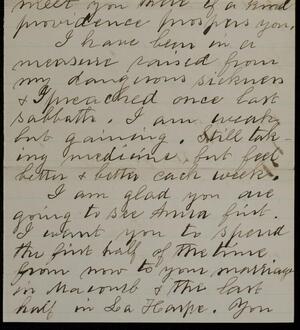 meet you there if a kind
providence prospers you.
I have been in a
measure raised from
my dangerous sickness
& I preached once last
sabbath. I am weak
but gaining. Still tak-
ing medicine but feel
better & better each week.
I am glad you are
going to see Anna first.
I want you to spend
the first half of the time
from now to your marriage
in Macomb & the last
half in La Harpe. You